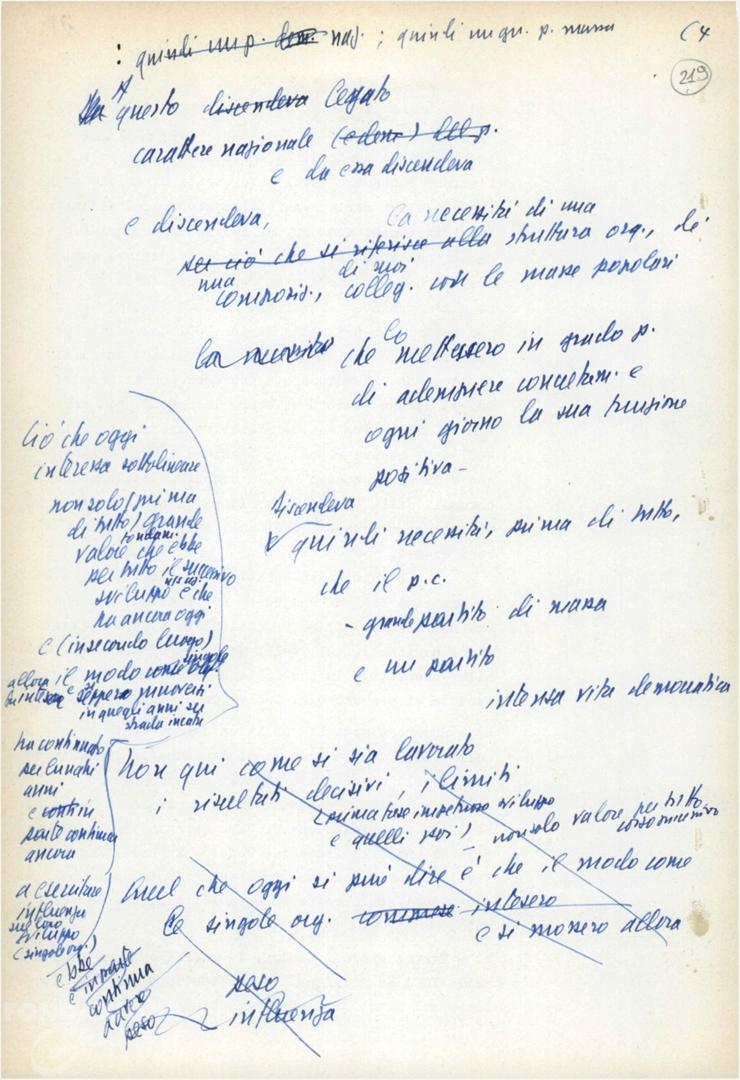 : quindi un p. dem. naz. ; quindi un gr. p. massa
(4
219
A questo discendeva legato
carattere nazionale (e dem.) del p.
e da essa discendeva
e discendeva,
la necessità di una
per ciò che si riferisce alla struttura org., di
una
di noi
composiz., colleg. con le masse popolari
la necessità che lo mettessero in grado p.
di adempiere concretam. e
ogni giorno la sua funzione
positiva –
Discendeva
quindi necessità, prima di tutto,
che il p.c.
- grande partito di massa
e un partito
intensa vita democratica
Ciò che oggi
interessa sottolineare
non solo (prima
di tutto) grande
fondam.
valore che ebbe
per tutto il successivo
sviluppo e che
ha ancora oggi
e (in secondo luogo)
singole
allora il modo come org.
intesero e seppero muoversi
in quegli anni su
strada
ha continuato
per lunghi
anni
e contin
parte continua
ancora
a esercitare
influenza
sul loro
sviluppo
(singole org.)
ebbe
e in parte
continua
avere
peso
Non qui come si sia lavorato
i risultati decisivi, i limiti
(prima fase impetuoso sviluppo
e quelli poi) – non solo valore per tutto
corso successivo
Quel che oggi si può dire è che il modo come
le singole org. intesero
e si mossero allora
peso
influenza